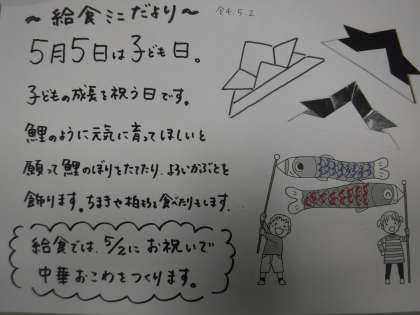 ～給食ミニだより～
R4.5.2
5月5日は子ども日。
子どもの成長を祝う日です。
鯉のように元気に育ってほしいと
願って鯉のぼりをたてたり、よろいかぶとを
飾ります。ちまきや柏もちを食べたりもします。
給食では、5/2にお祝いで
中華おこわをつくります。